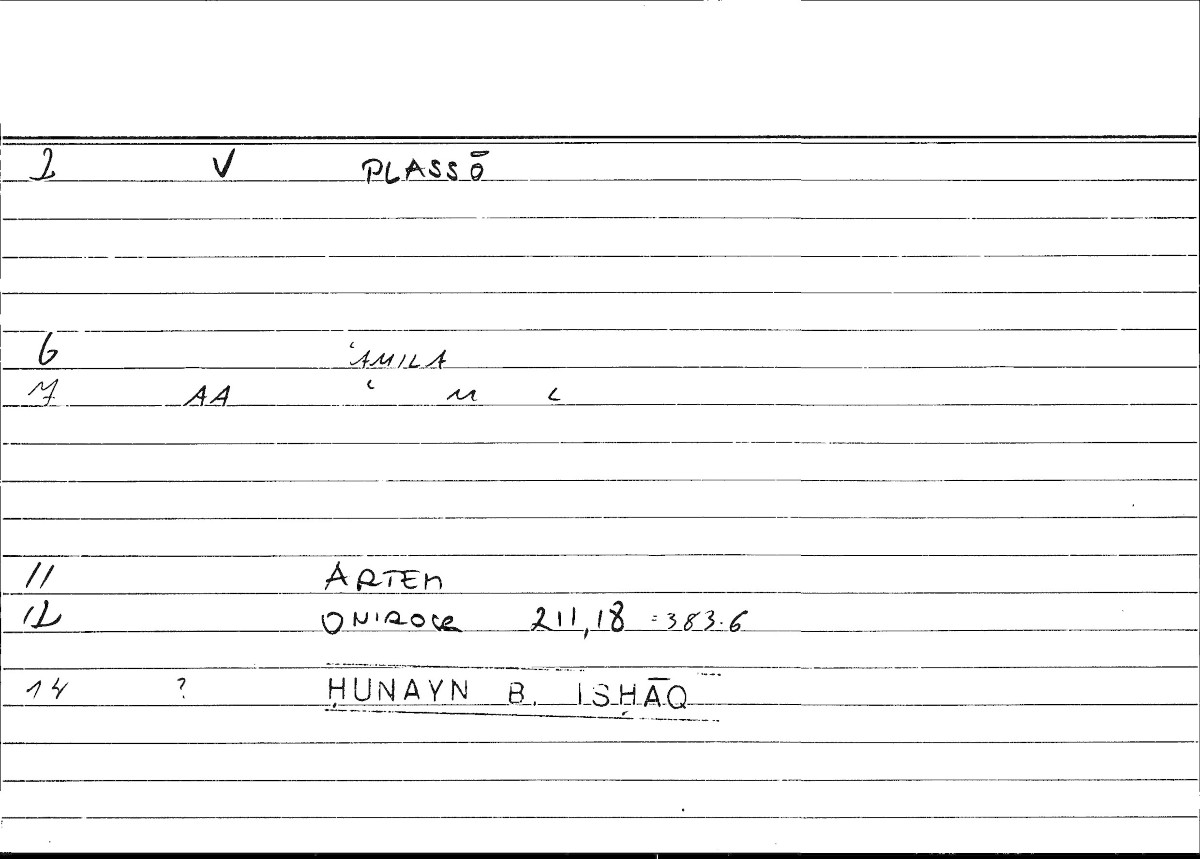 2 V PLASSŌ
6 ʿAMILA
7 AA ʿ M L
11 ARTEM
12 ONIROCR 211,18 = 383.6
14 ? ḤUNAYN B. ISḤĀQ